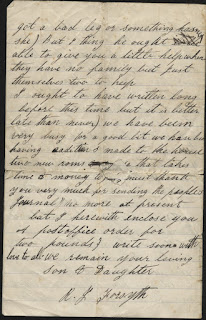 got a bad leg or something
she) But I thing he ought
able to give you a little help when
they have no family but just
themselves two to keep
I ought to have written long
before this time but it is better
late than never) we have been
very busy for a good bit we han been
having additions made to the house
two new rooms that takes
time & money I must thank
you very much for sending the people's
Journal) no more at present
but I herewith enclose you
a postoffice order for
two pounds) write soon with
love to all we remain your loving
Son & Daughter
R. J Forsyth